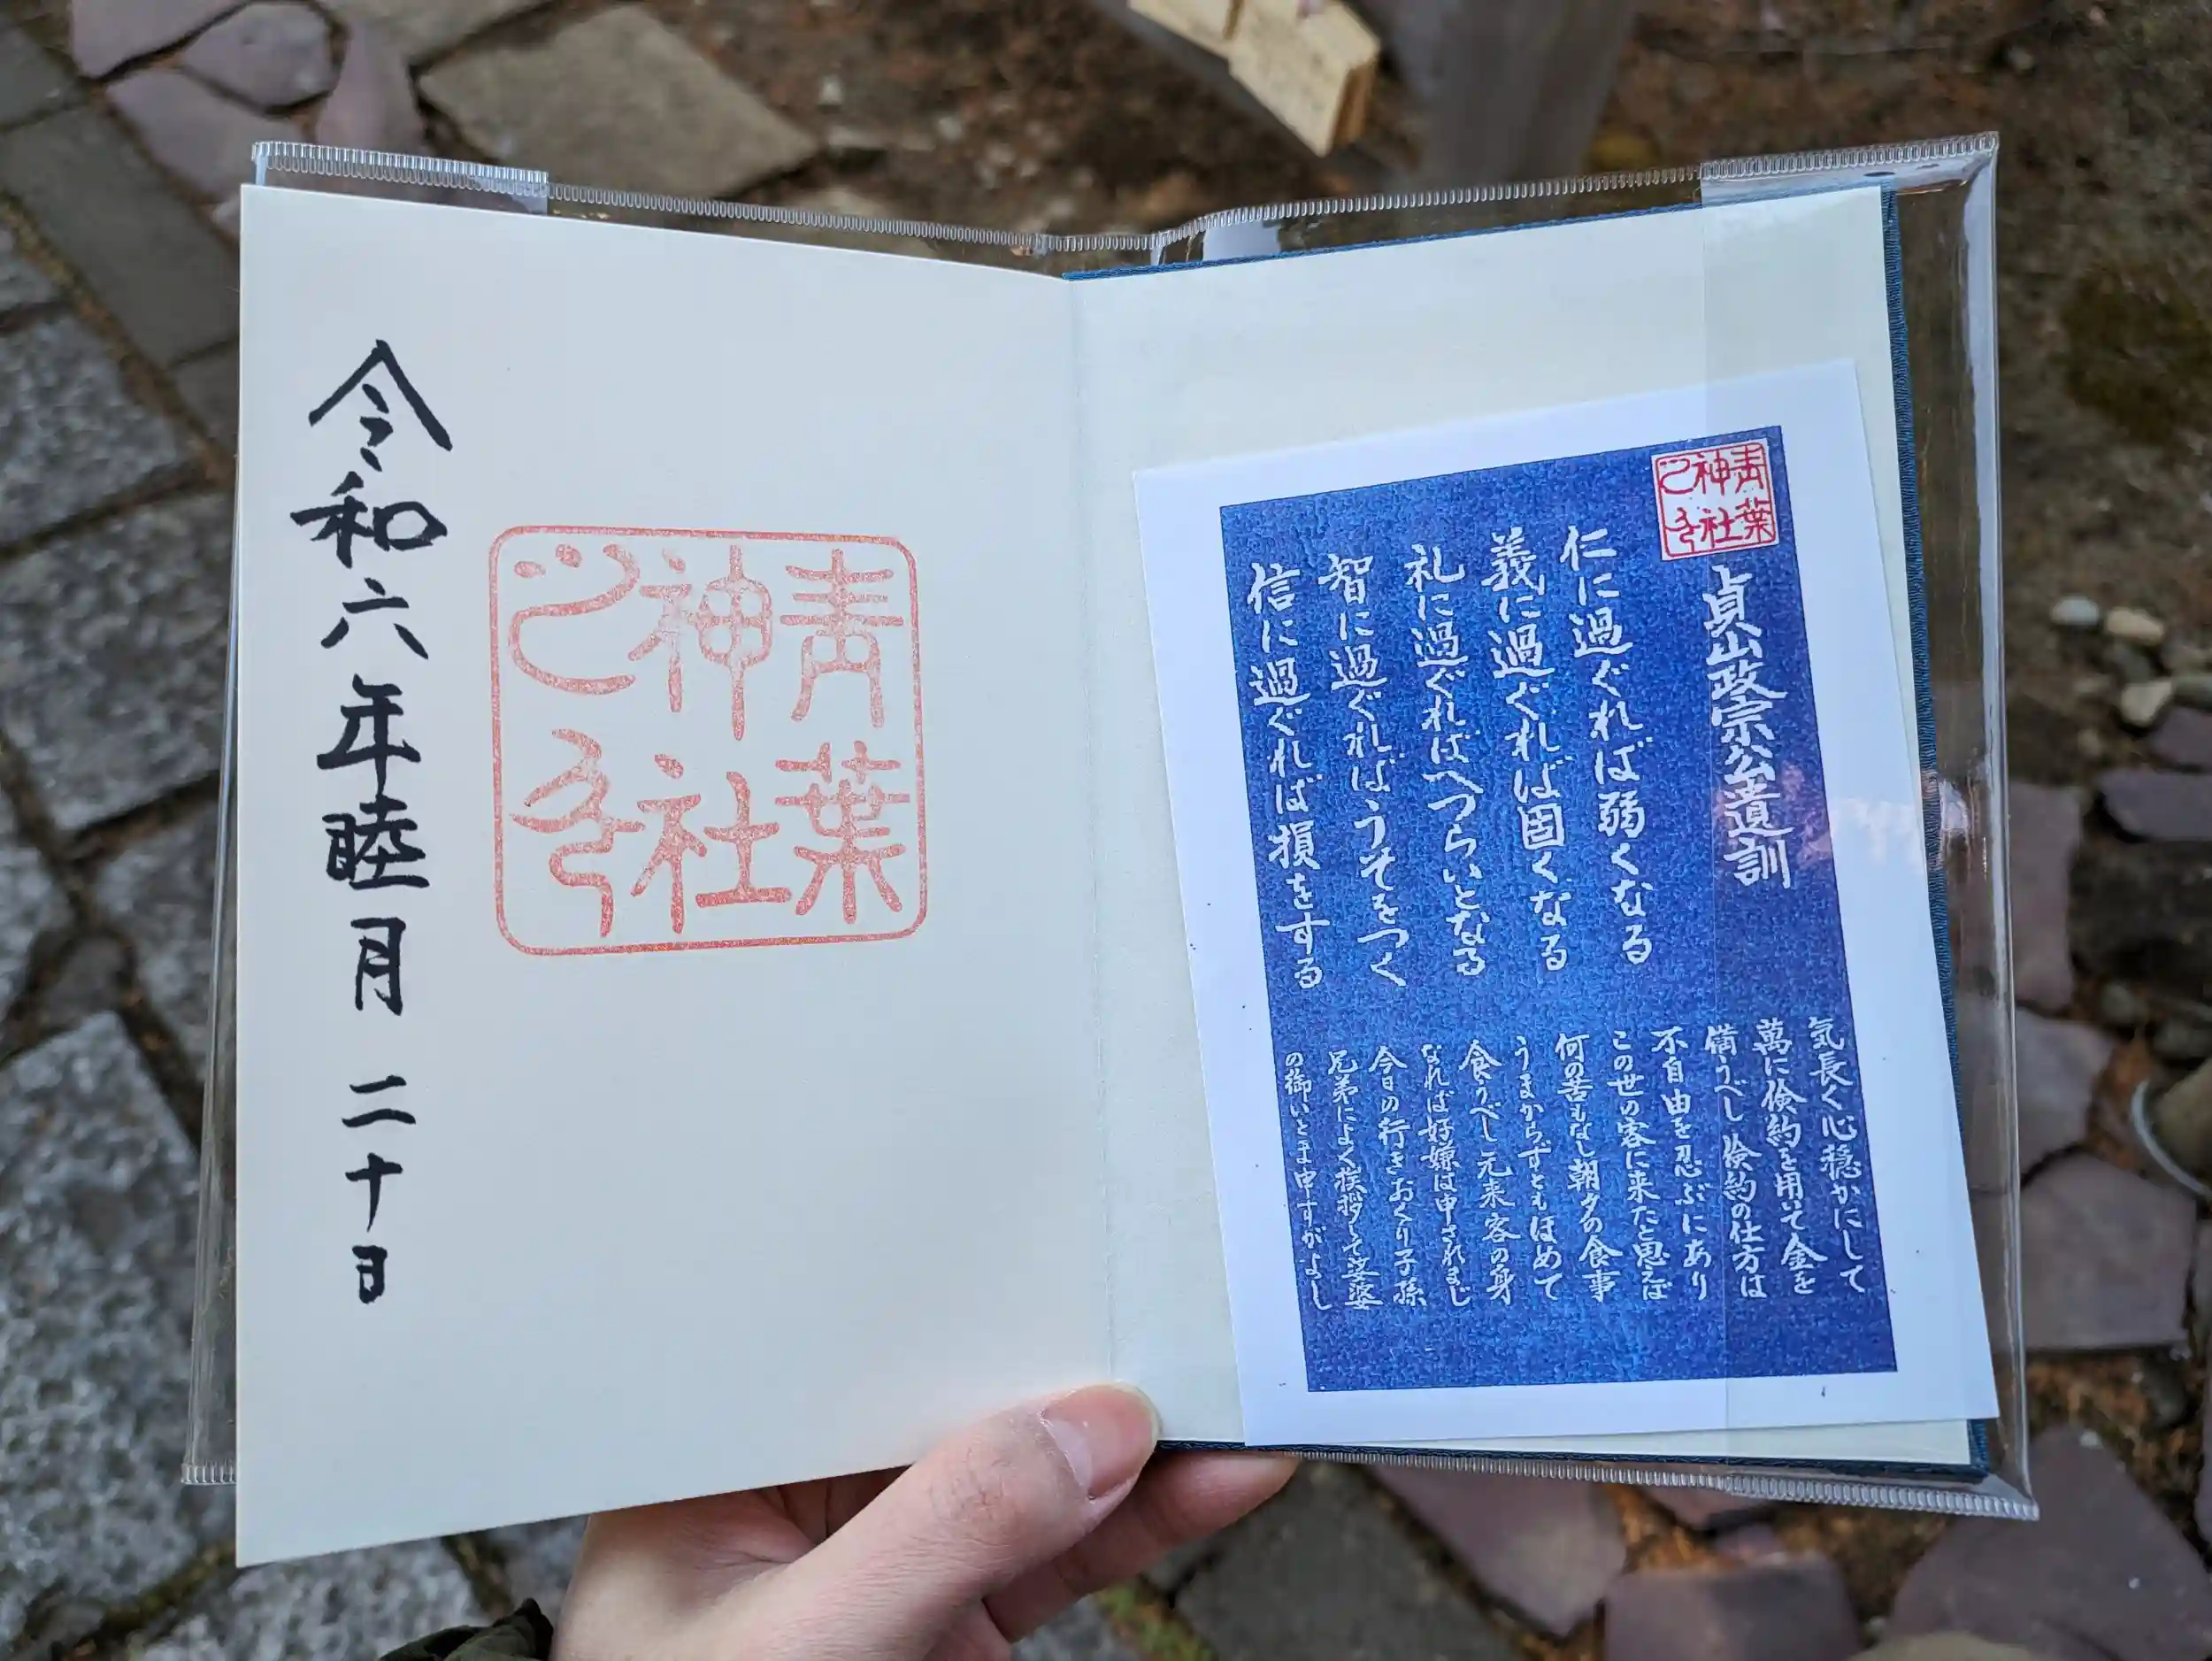 青葉
神社
之印
貞山政宗公遺訓
仁に過ぐれば弱くなる
義に過ぐれば固くなる
礼に過ぐればへつらいとなる
智に過ぐればうそをつく
信に過ぐれば損をする
気長く心穏かにして
萬に倹約を用いて金を
備うべし 倹約の仕方は
不自由を忍ぶにあり
この世の客に来たと思えば
何の苦もなし朝夕の食事
うまからずともほめて
食うべし元来客の身
なれば好嫌は申されまじ
今日の行きおくり子孫
兄弟によく挨拶して娑婆
の御いとま申すがよし
青葉
神社
之印
令和六年睦月 二十日